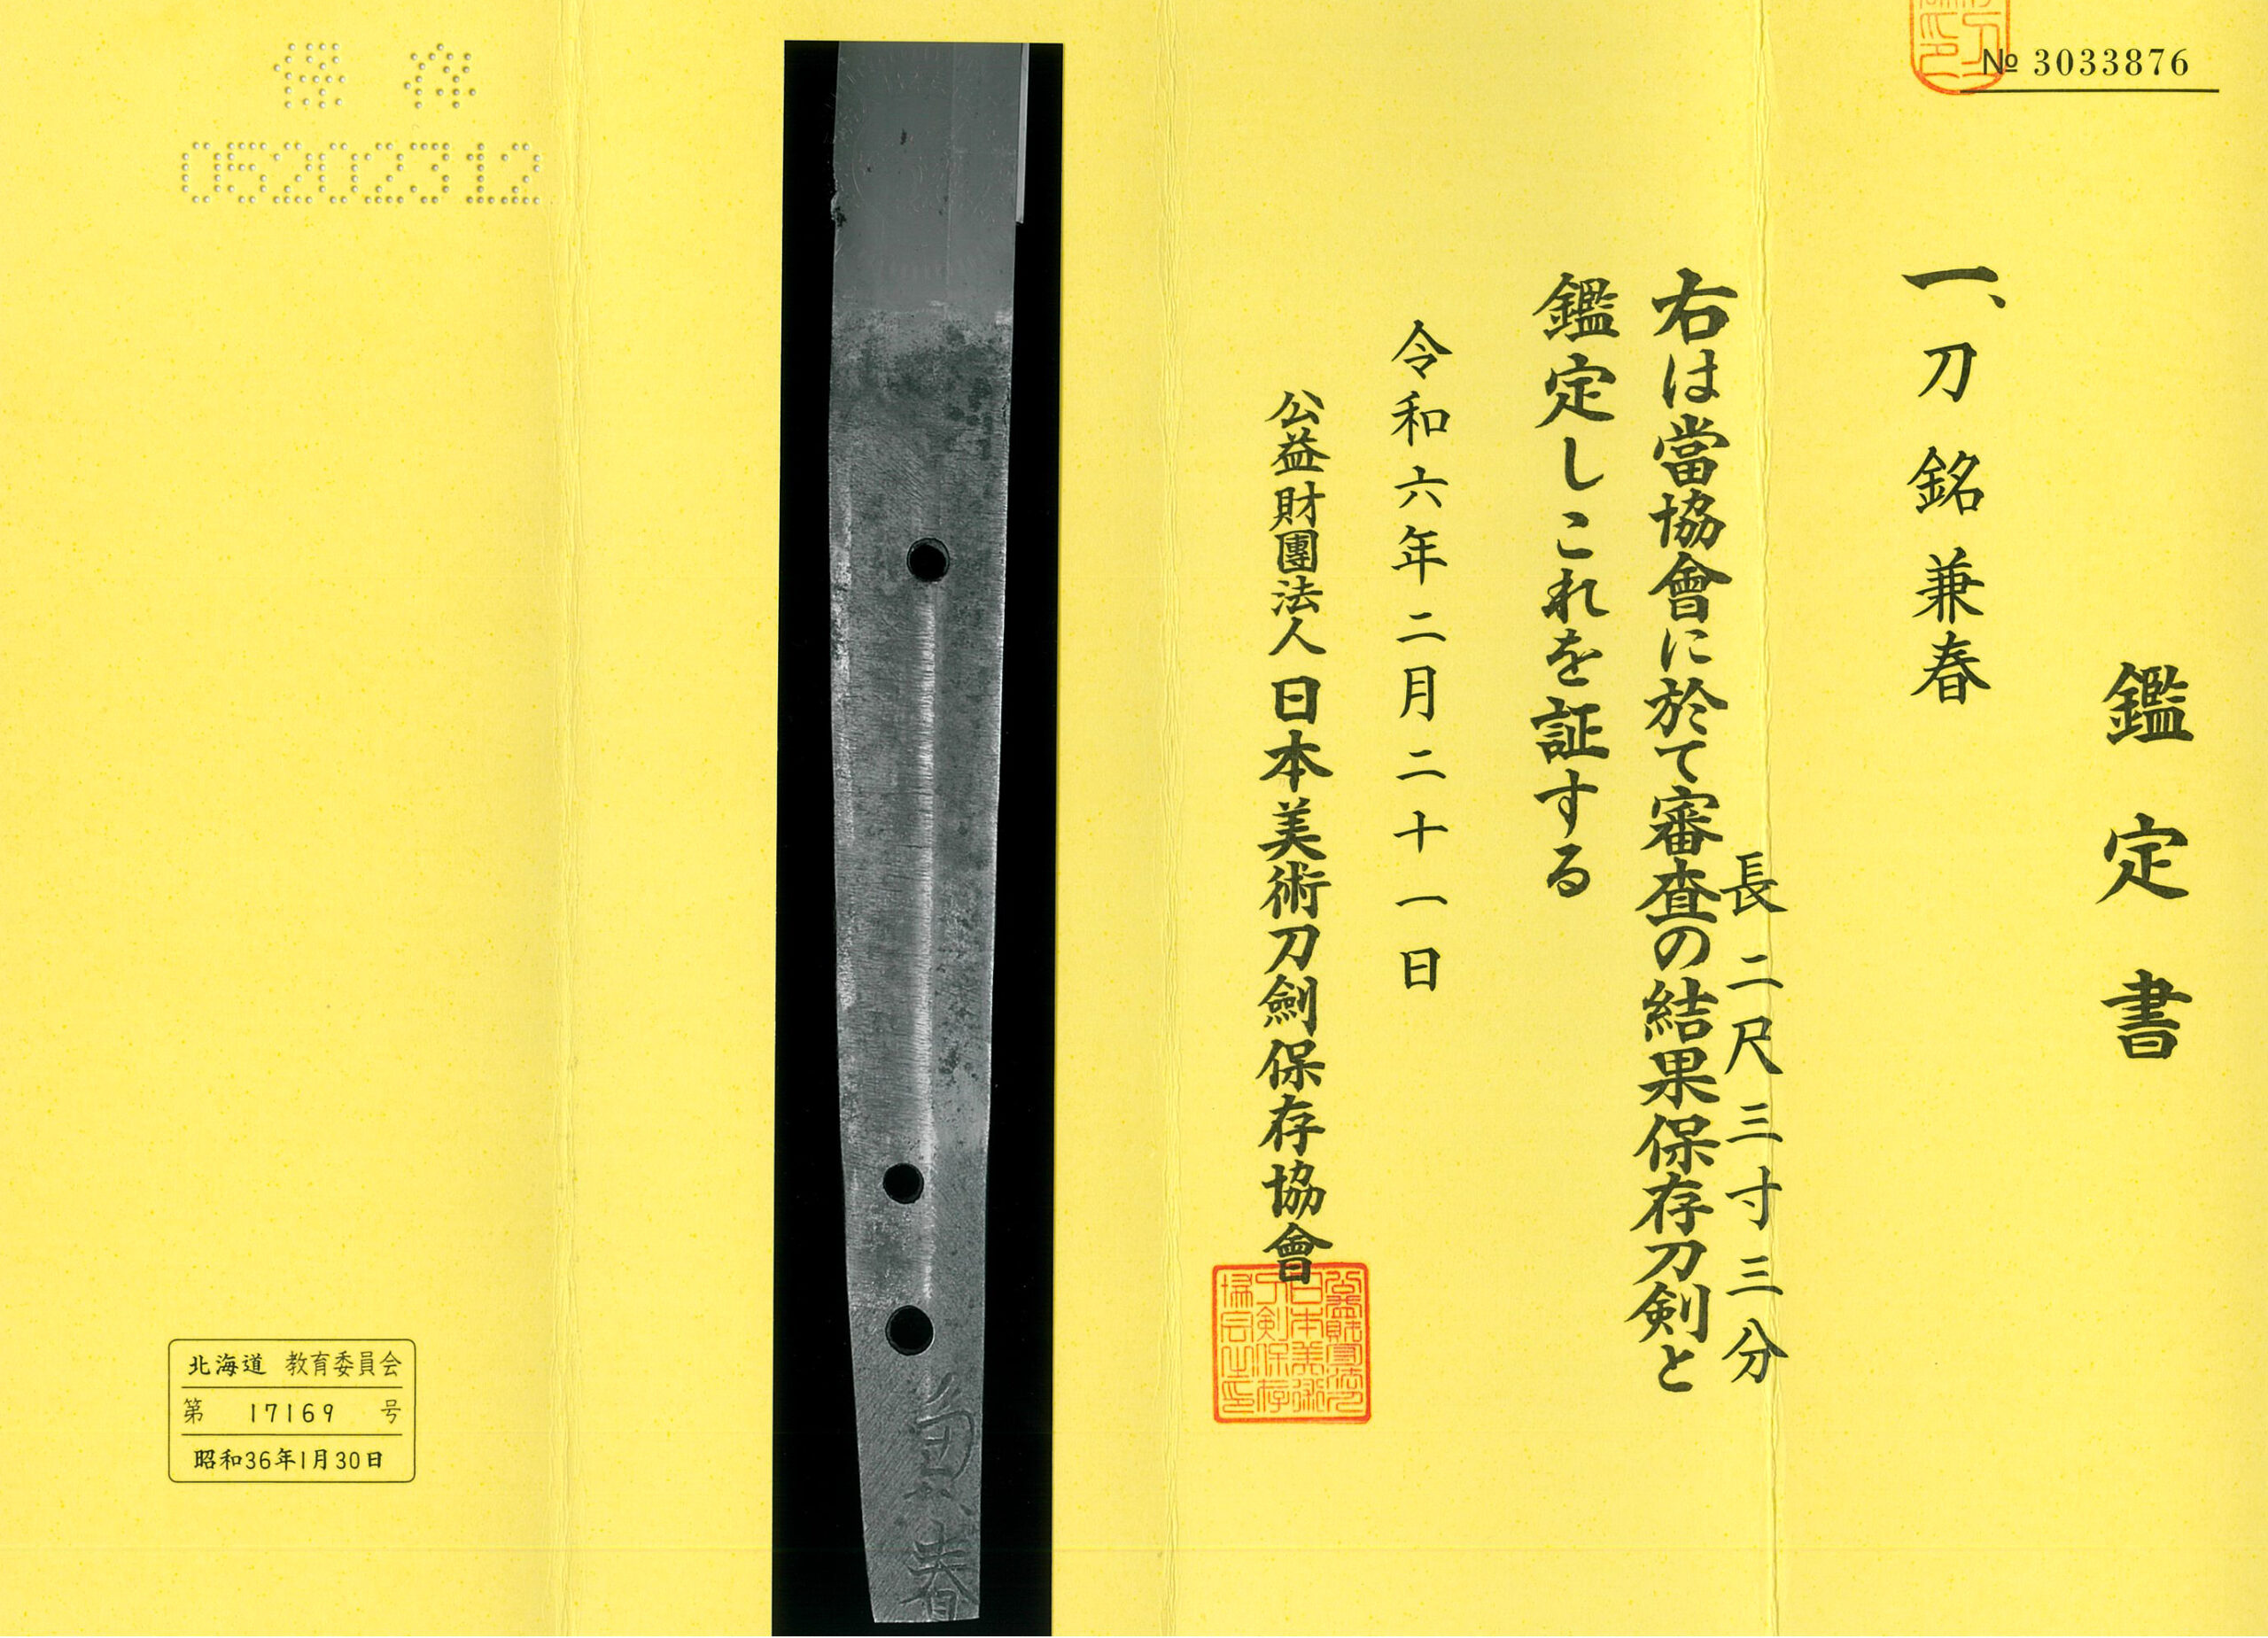 № 3033876
鑑定書
一、刀 銘 兼春
長 二尺三寸三分
右は當協會に於て審査の結果保存刀剣と
鑑定しこれを証する
令和六年二月二十一日
公益財團法人 日本美術刀劍保存協會
公益財團法人
日本美術
刀剣保存
協会之印
兼春
保存
05202312
北海道 教育委員会
第 17169 号
昭和36年1月30日